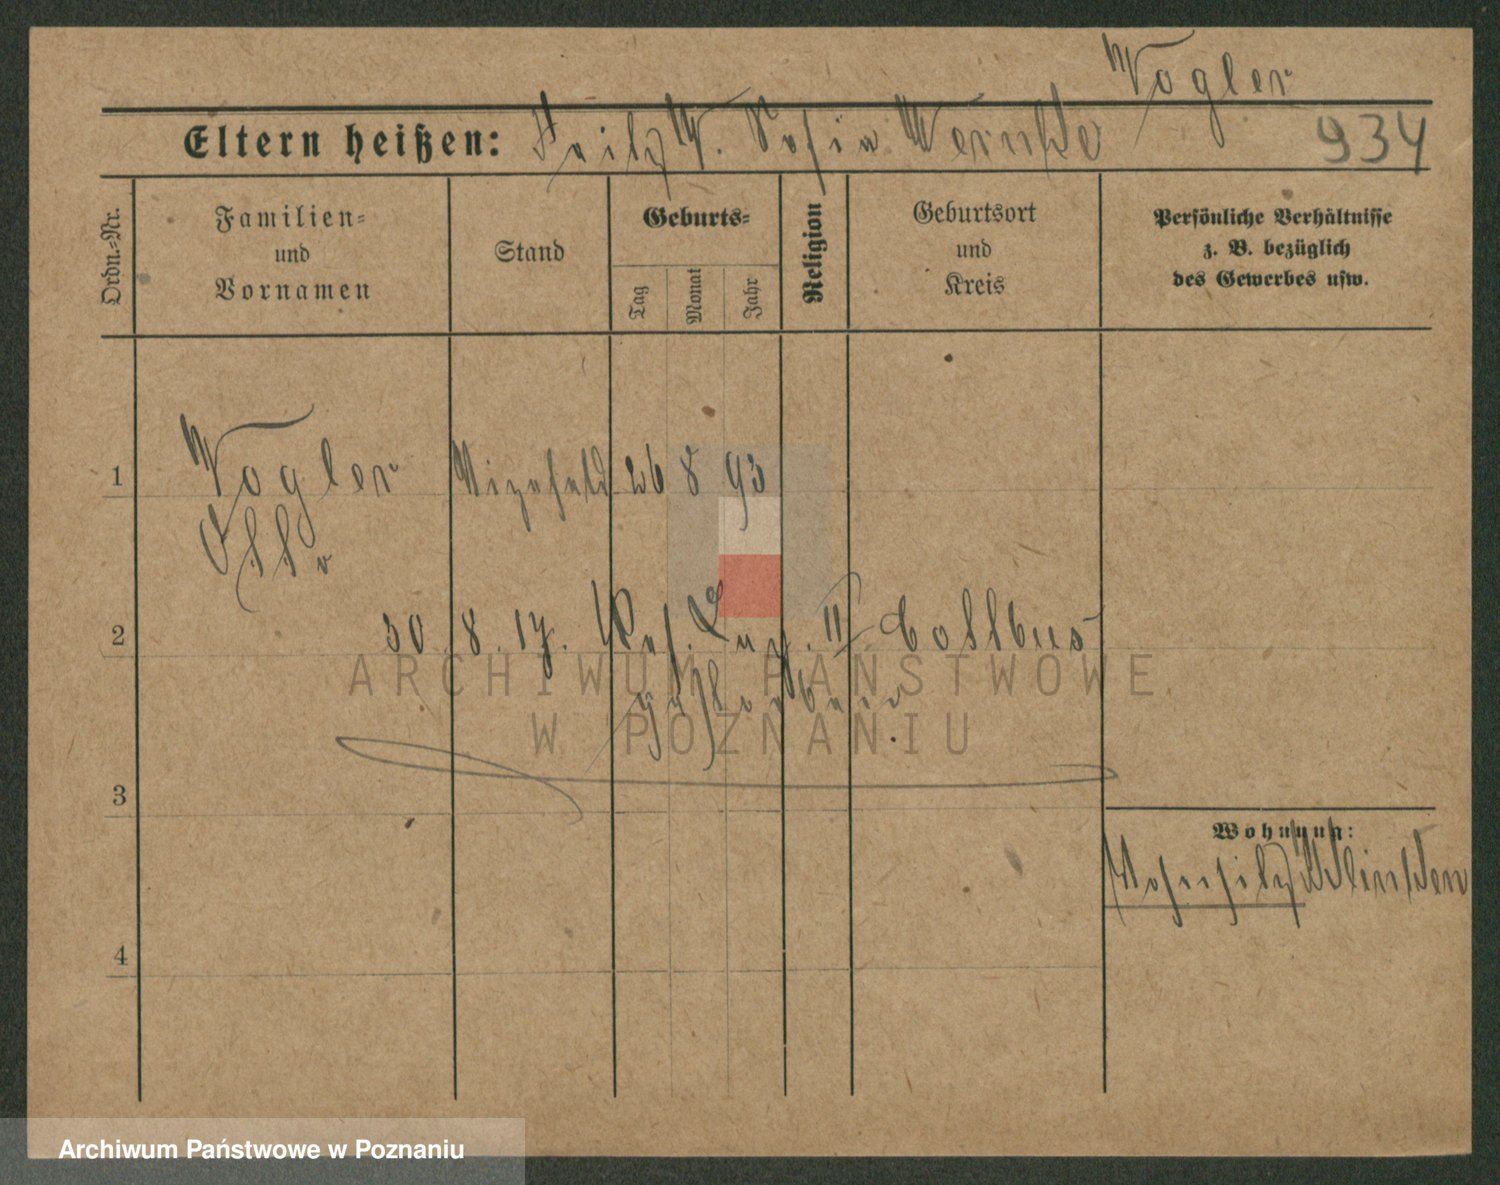 Vogler
Eltern heißen: Fritz V. Sofia Wernke 934
Ordn.-Nr.
Familien-
und
Vornamen
Stand
Geburts-
Tag
Monat
Jahr
Religion
Geburtsort
und
Kreis
Persönliche Verhältnisse
z. B. bezüglich
des Gewerbes usw.
1 Vogler Vizefeld 26 8 93
Otto
2 30. 8. 17. Res. Laz. II Cottbus
gestorben
3
Wohnung:
Wohnsitz
4
ARCHIWUM PAŃSTWOWE
W POZNANIU
Archiwum Państwowe w Poznaniu